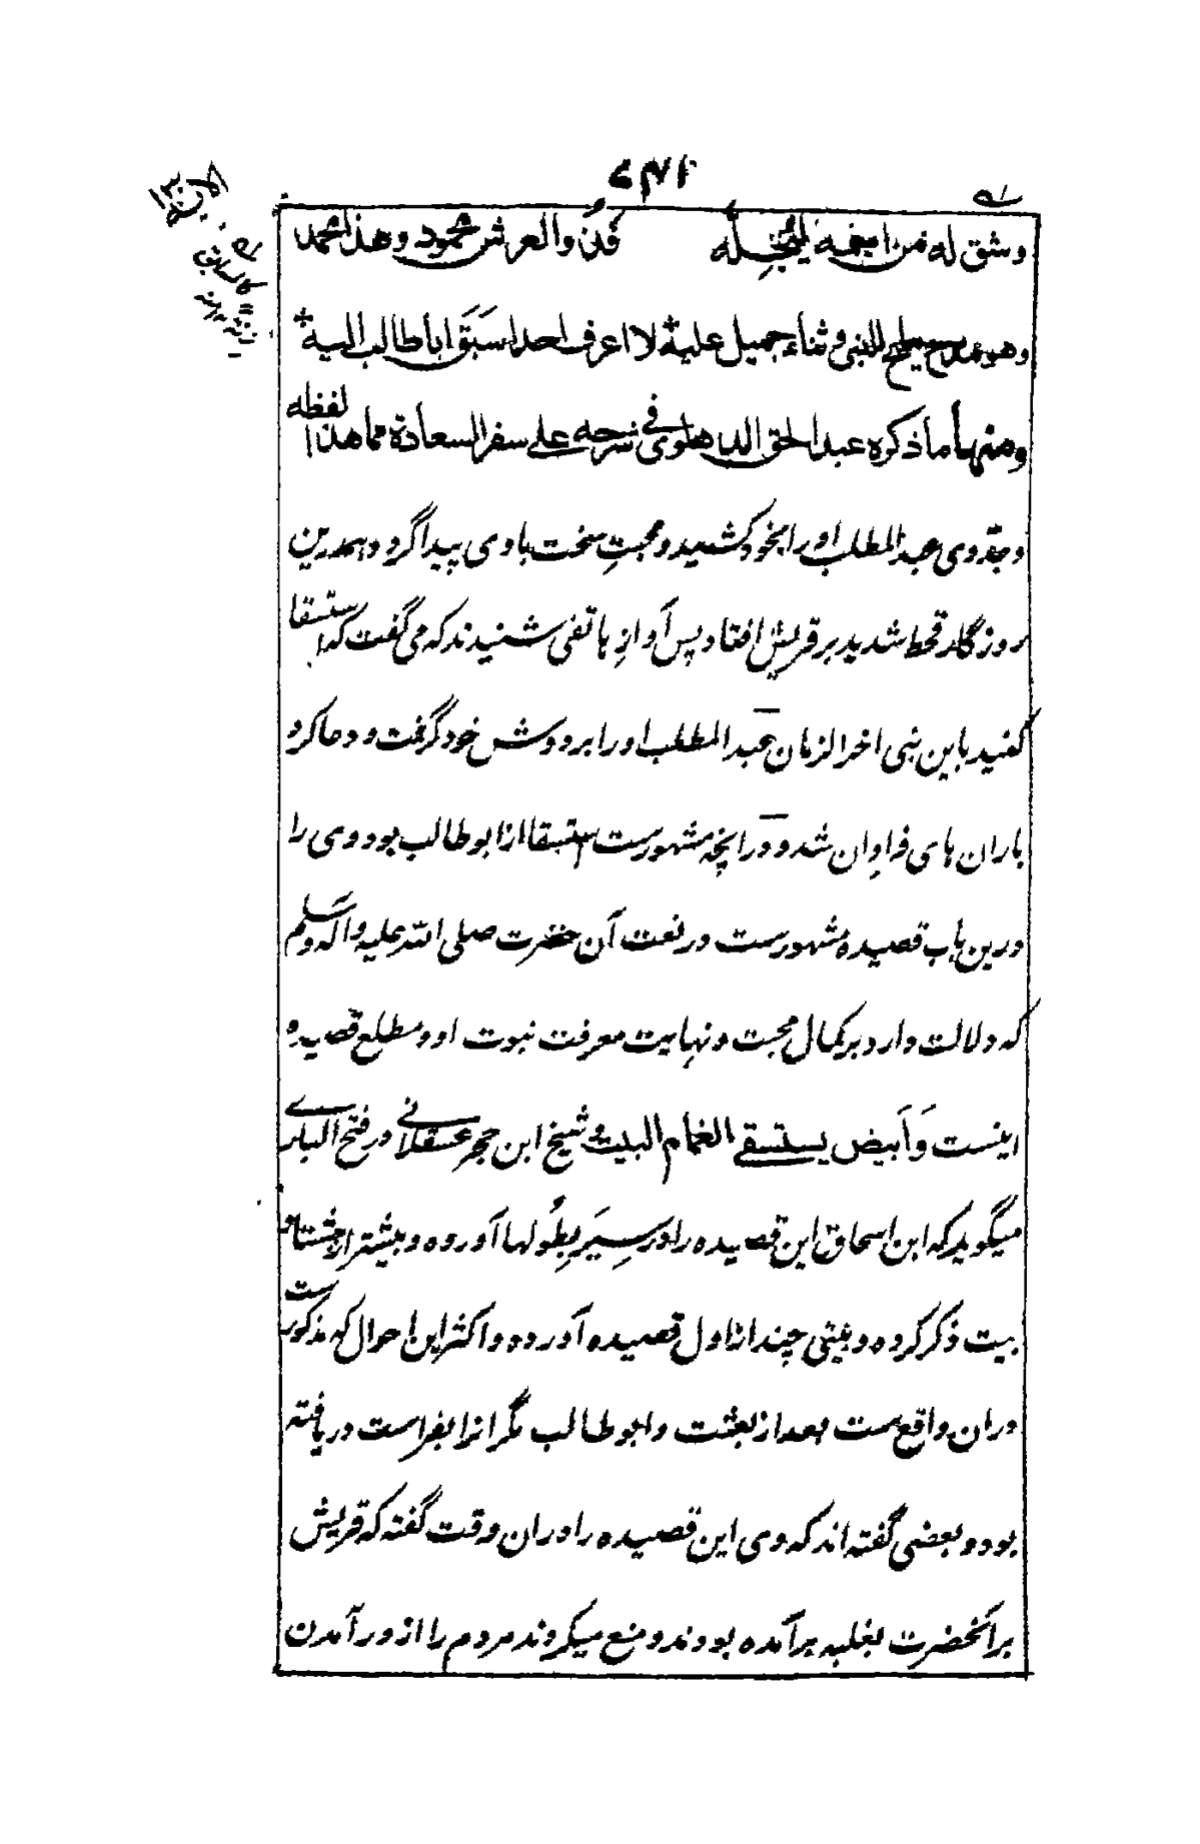 وشق له من اسمه ليجله فذو العرش محمود وهذا محمد
وهو مدح للنبي وثناء جميل عليه لا اعرف احدا سبق ابا طالب اليه
ومنها ما ذكره عبد الحق الدهلوي في شرحه على سفر السعادة مما هذا لفظه
وجد وى عبد المطلب اورا بخود كشيد و محبتِ سخت باوى پيدا كرد و همدرين
روزگار قحط شديد بر قريش افتاد پس آوازِ هاتفى شنيدند كه مى گفت كه استسقا
كنيد باين نبى اخر الزمان عبد المطلب اورا بر دوش خود گرفت و دعا كرد
باران هاى فراوان شد و در انچه مشهورست استسقا از ابو طالب بود و وى را
درين باب قصيده مشهورست در نعت آن حضرت صلى الله عليه واله وسلم
كه دلالت دارد بر كمال محبت و نهايت معرفت نبوت او و مطلع قصيده
اينست وَاَبيض يستسقى الغمام البيت و شيخ ابن حجر عسقلانى در فتح البارے
ميگويد كه ابن اسحاق اين قصيده را در سِيَر بطُولها آورده و بيشتر از هشتاد
بيت ذكر كرده و بيتى چند از اول قصيده آورده و اكثر اين احوال كه مذكورست
دران واقع ست بعد از بعثت و ابو طالب مگر انرا بفراست دريافته
بود و بعضى گفته اند كه وى اين قصيده را دران وقت گفته كه قريش
بر آنحضرت بغلبه بر آمده بودند و منع ميكردند مردم را از در آمدن